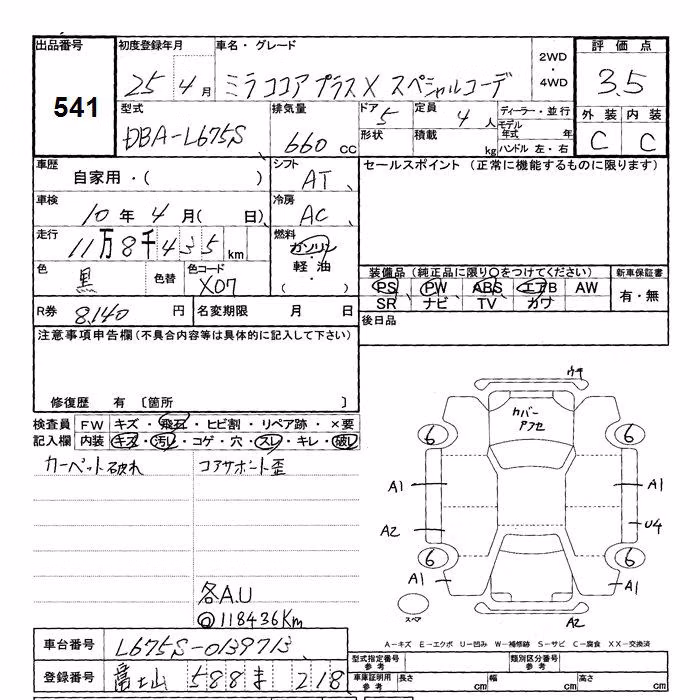 出品番号 初度登録年月 車名・グレード 2WD・4WD 評価点
541 25 4月 ミラココアプラスX スペシャルコーデ 3.5
型式 排気量 ドア 5 定員 4人 ディーラー・並行 外装 内装
DBA-L675S 660cc 形状 積載 kg モデル年式 年 ハンドル 左・右 C C
車歴 シフト セールスポイント (正常に機能するものに限ります)
自家用・( ) AT
車検 冷房
10年 4月( 日) AC
走行 燃料
11万8千435km ガソリン・軽・油 ( )
色 黒 色替 色コード X07
装備品 (純正品に限り○をつけてください) 新車保証書
PS PW ABS エアB AW 有・無
SR ナビ TV カワ
R券 8,140円 名変期限 月 日 後日品
注意事項申告欄(不具合内容等は具体的に記入して下さい)
修復歴 有 〔箇所 〕
検査員 FW キズ・飛石・ヒビ割・リペア跡・×要
記入欄 内装 キズ・汚レ・コゲ・穴・スレ・キレ・破レ
カーペット破れ コアサポート歪
カバー
6 6
A1 A1
A2 U4
6 6
A1 A1
スペア A2
各A.U
◎118436Km
A-キズ E-エクボ U-凹み W-補修跡 S-サビ C-腐食 XX-交換済
車台番号 L675S-0139713 型式指定番号 参考 類別区分番号 参考
登録番号 富士山 588 ま 218 車庫証明用 参考 長さ cm 幅 cm 高さ cm